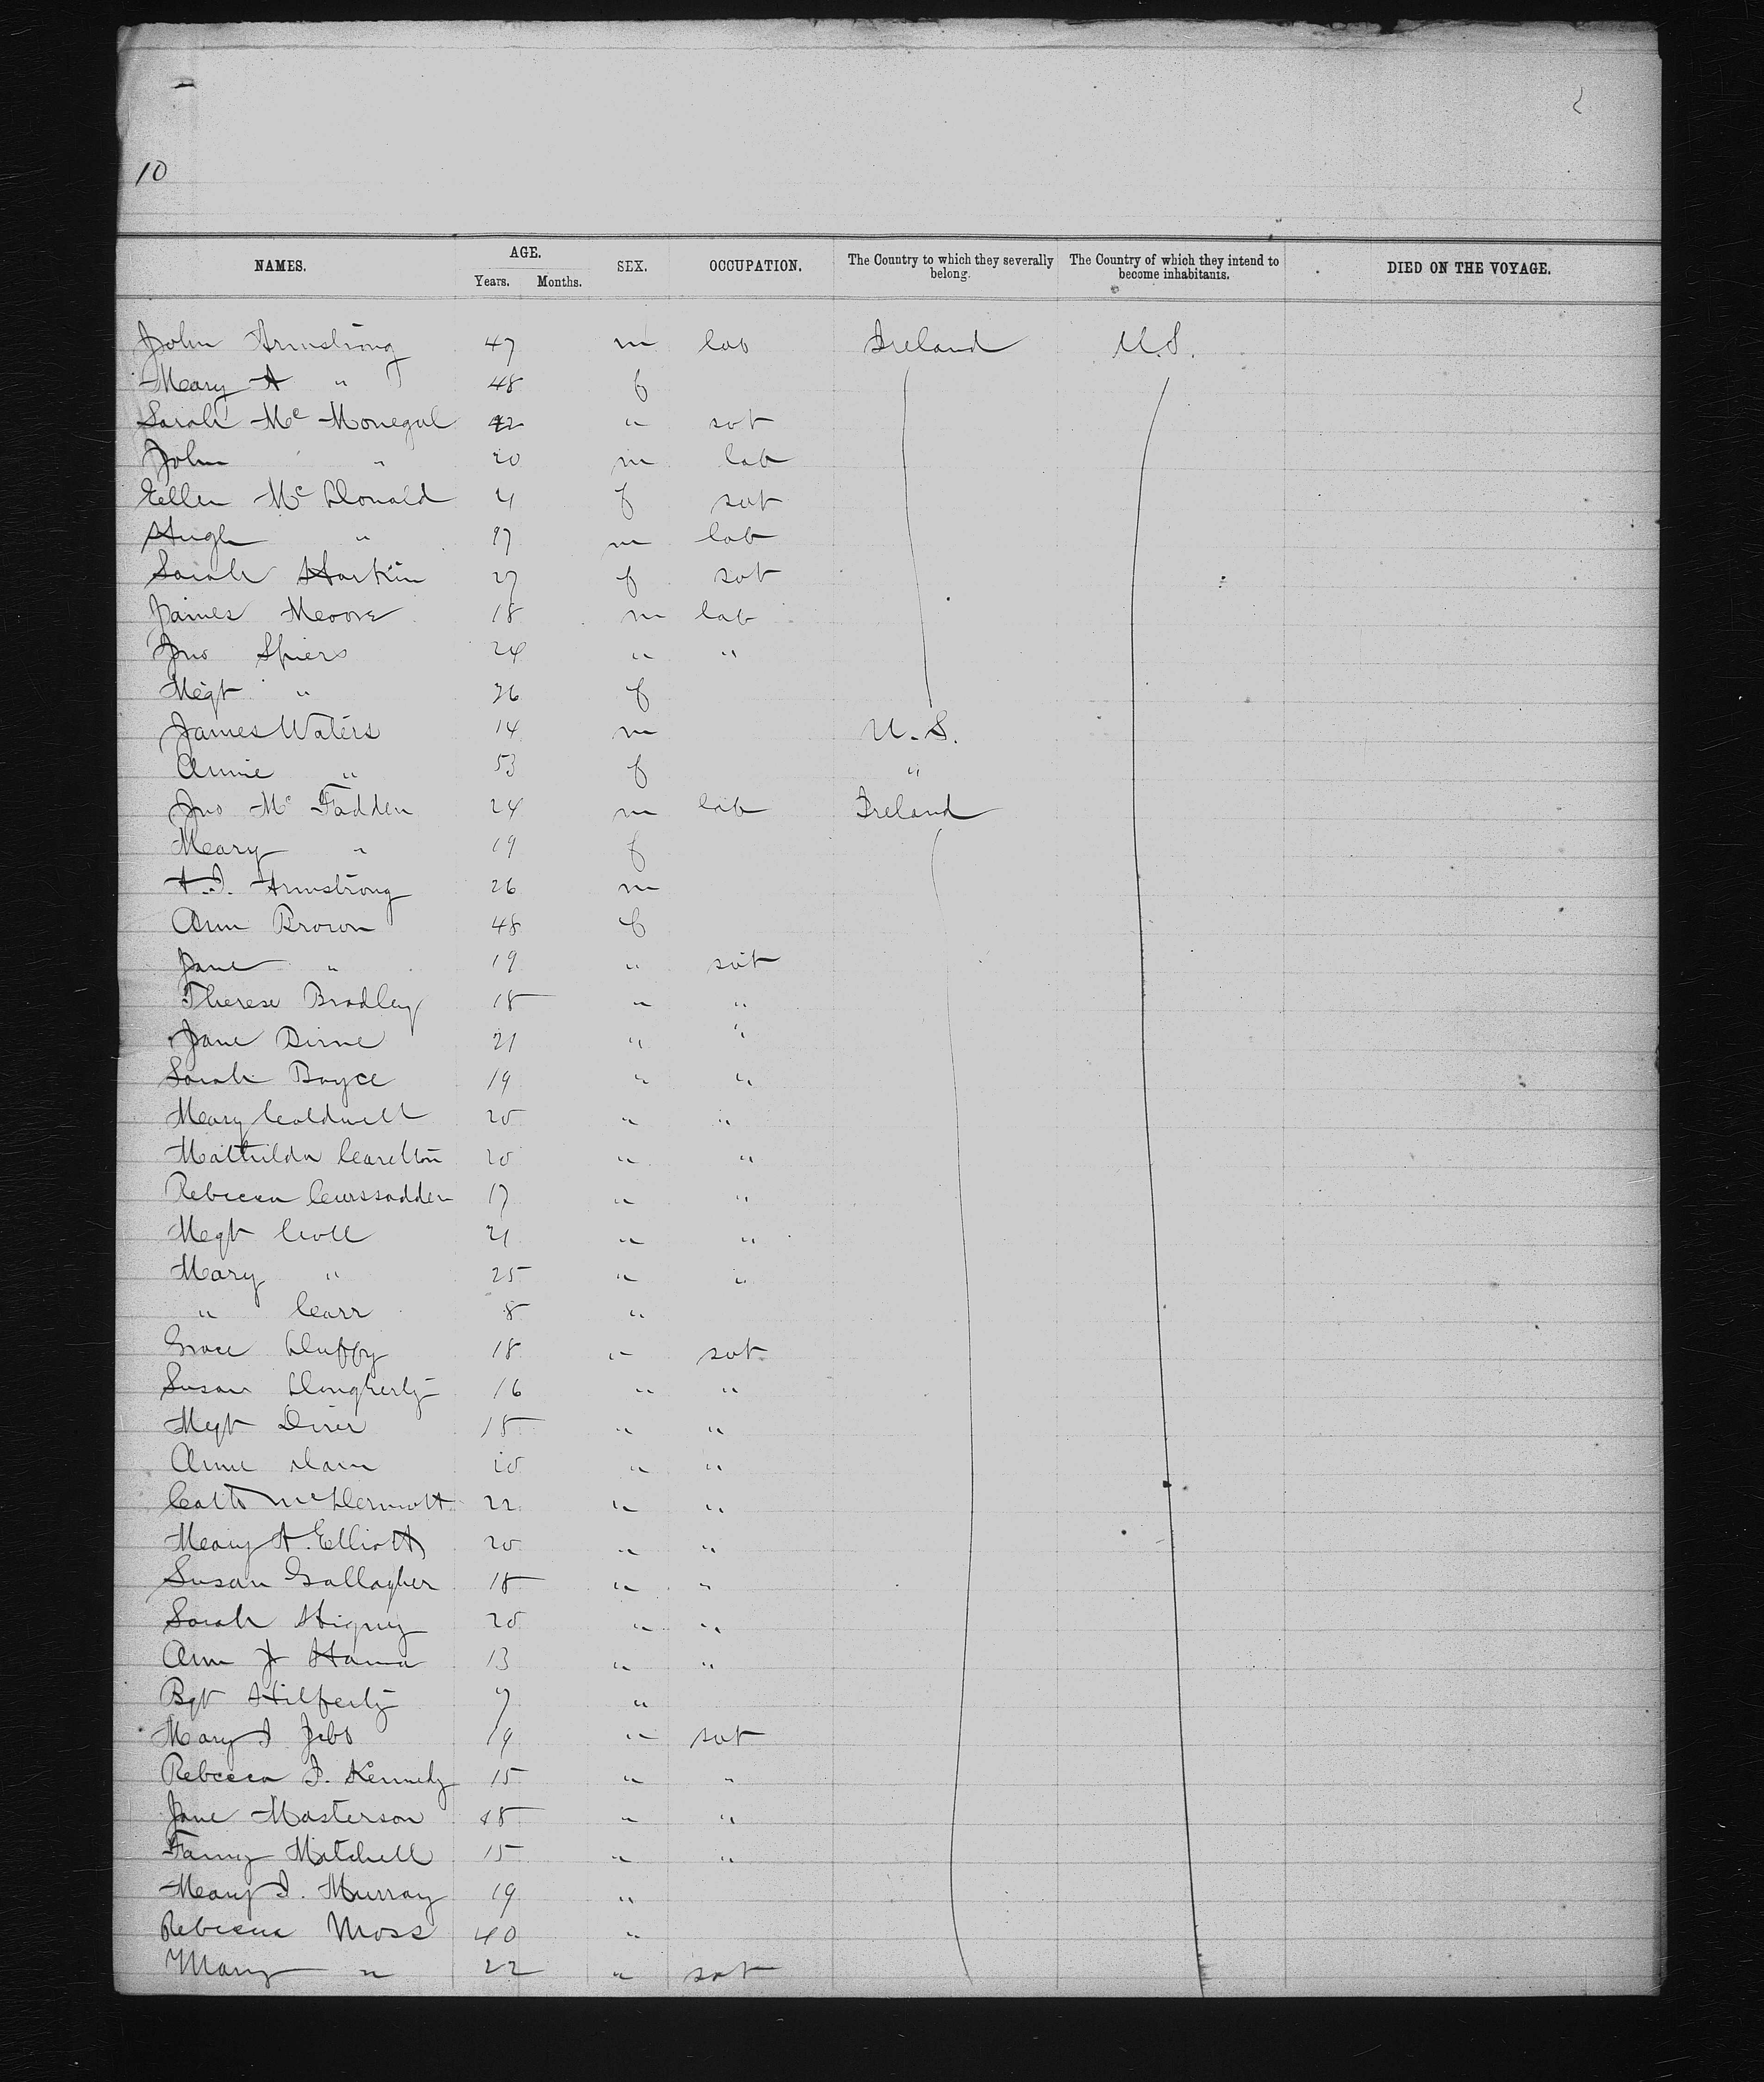 10
NAMES. AGE. Years. Months. SEX. OCCUPATION. The Country to which they severally belong. The Country of which they intend to become inhabitants. DIED ON THE VOYAGE.
John Armstrong 47 m lab Ireland U.S.
Mary A " 48 f
Sarah Mc Monegal 42 " svt
John " 20 m lab
Ellen Mc Donald 21 f svt
Hugh " m lab
Sarah Harkin 27 f svt
James Moore 18 m lab
Jno Spiers 24 " "
Mgt " 26 f
James Waters 14 m U.S.
Annie " 53 f "
Jno Mc Fadden 24 m lab Ireland
Mary " 19 f
A.J. Armstrong 26 m
Ann Brown 48 f
Jane " 19 " svt
Therese Bradley 18 " "
Jane Birne 21 " "
Sarah Boyce 19 " "
Mary Coldwell 20 " "
Mathilda Carelton 20 " "
Rebecca 17 " "
Megt Coll 21 " "
Mary " 25 " "
" Carr 8 "
Grace Duffy 18 " svt
Susan Dougherty 16 " "
Mgt Diver 18 " "
Anne 20 " "
Cath McDermott 22 " "
Mary A. Elliott 20 " "
Susan Gallagher 18 " "
Sarah Higney 20 " "
Ann J Hanna 13 " "
Bgt Hilferty 7 "
Mary J Jebb 19 " svt
Rebecca J. Kennedy 15 " "
Jane Masterson 18 " "
Fanny Mitchell 15 " "
Mary J. Murray 19 "
Rebecca Moss 40 "
Mary " 22 " svt